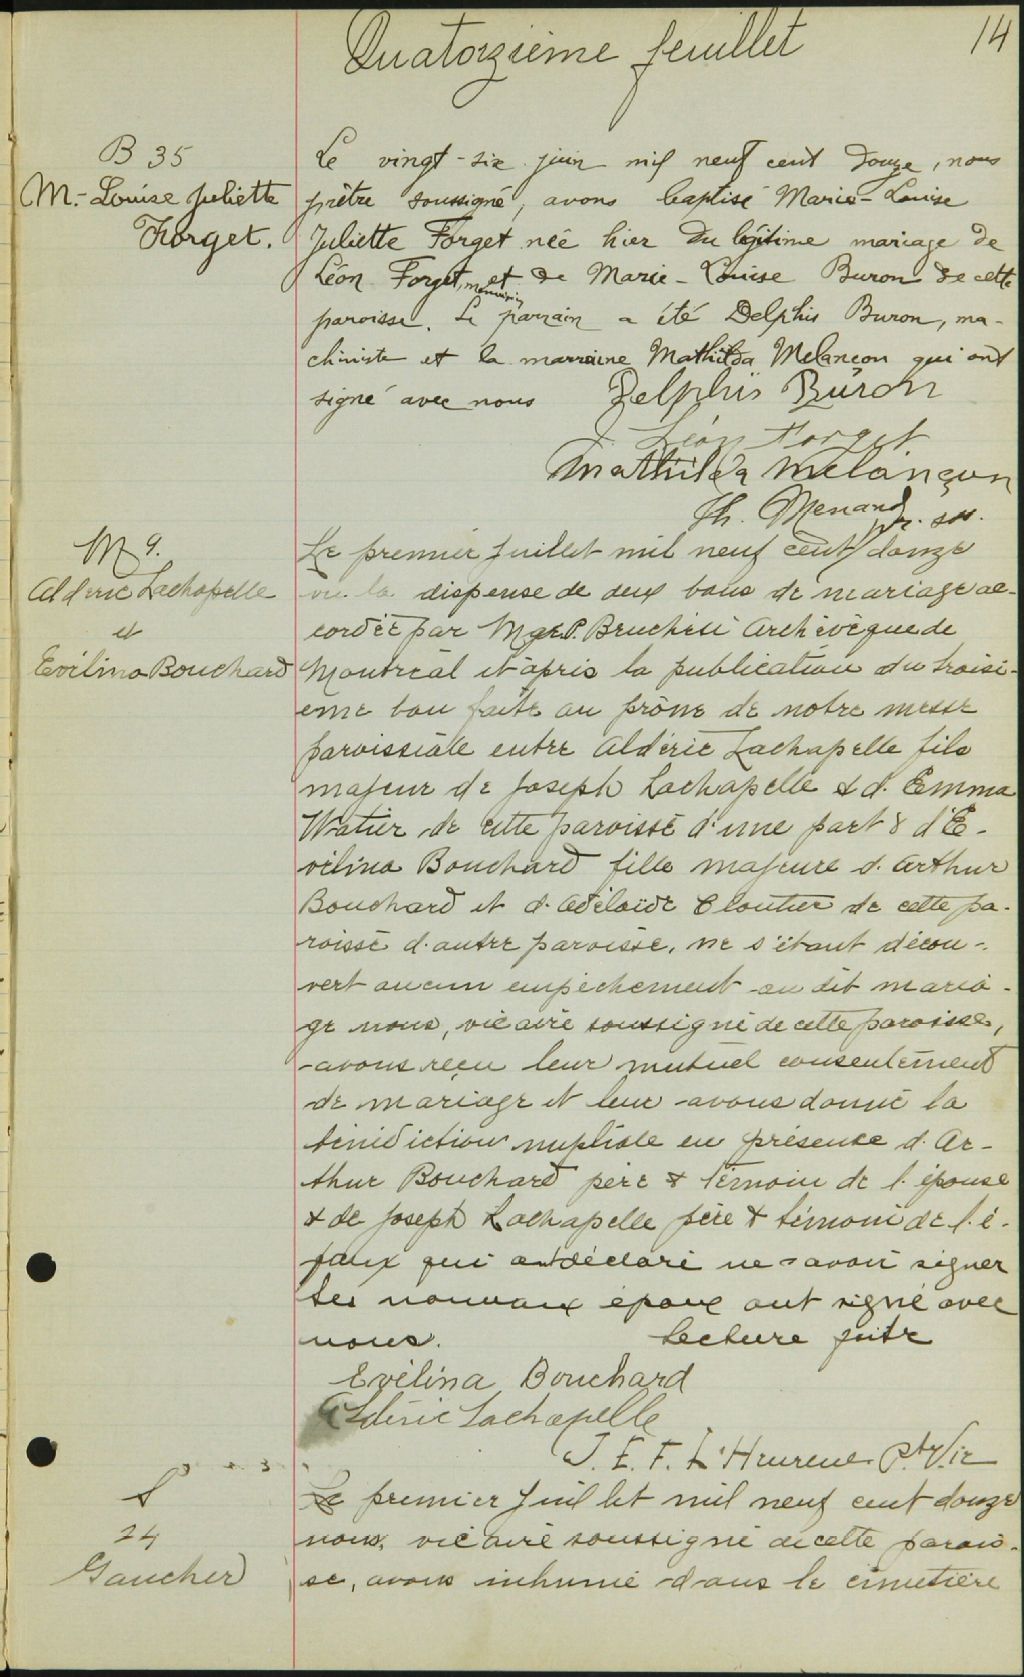 Quatorzième feuillet
14
B 35
M.-Louise Juliette
Forget.
Le vingt-six juin mil neuf cent douze, nous
prêtre soussigné, avons baptisé Marie-Louise
Juliette Forget née hier du légitime mariage de
Léon Forget, menuisier et de Marie-Louise Buron de cette
paroisse. Le parrain a été Delphis Buron, ma-
chiniste et la marraine Mathilda Melancon qui ont
signé avec nous
Delphis Buron
Léon Forget
Mathilda Melançon
Th. Menard ptr. ss.
M 9.
Aldéric Lachapelle
et
Evilina Bouchard
Le premier Juillet mil neuf cent douze
vu la dispense de deux bans de mariage ac-
cordée par Mgr P. Bruchési Archévêque de
Montréal et après la publication du troisi-
ème ban faite au prône de notre messe
paroissiale entre Aldéric Lachapelle fils
majeur de Joseph Lachapelle & d. Emma
Watier de cette paroisse d'une part & d'E-
vilina Bouchard fille majeure d. Arthur
Bouchard et d. Adélaïde Cloutier de cette pa-
roisse d. autre paroisse, ne s'étant décou-
vert aucun empêchement au dit maria-
ge nous, vicaire soussigné de cette paroisse,
avons reçu leur mutuel consentement
de mariage et leur avons donné la
bénédiction nuptiale en présence d. Ar-
thur Bouchard père & témoin de l. épouse
& de Joseph Lachapelle père & témoin de l. é-
poux qui ont déclaré ne savoir signer
Les nouveaux époux ont signé avec
nous. Lecture faite
Evélina Bouchard
Aldéric Lachapelle
J. E. F. L'Heureux Ptr Vic
S
24
Gaucher
Le premier Juillet mil neuf cent douze
nous, vicaire soussigné de cette parois-
se, avons inhumé dans le cimetière